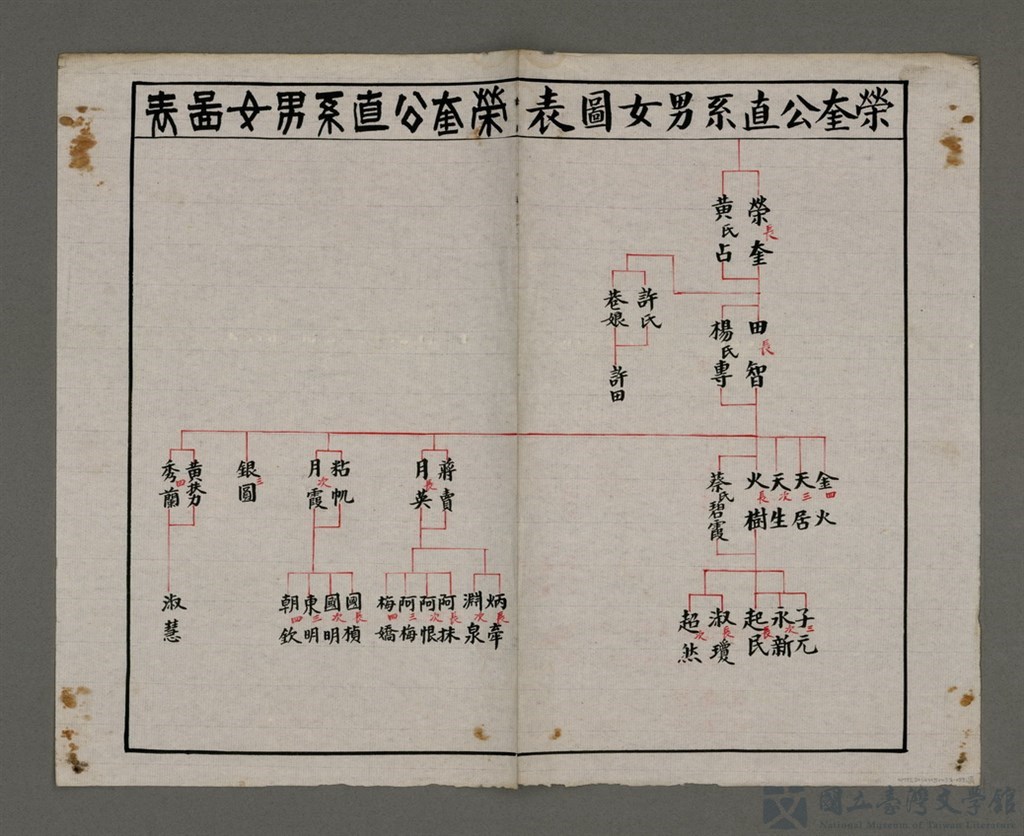 榮奎公直系男女圖表
榮奎公直系男女圖表
榮長奎
黃氏占
許氏
巷娘
許田
田長智
楊氏專
金四火
天三居
天次生
火長樹
蔡氏碧霞
蔣賣
月長英
粘帆
月次霞
銀三圓
黃
秀四蘭
子三元
永次新
起長民
淑長瓊
超次然
炳長牽
淵次泉
阿長抹
阿次恨
阿三梅
梅四嬌
國長楨
國次明
東三明
朝四欽
淑慧
國立臺灣文學館
National Museum of Taiwan Literature